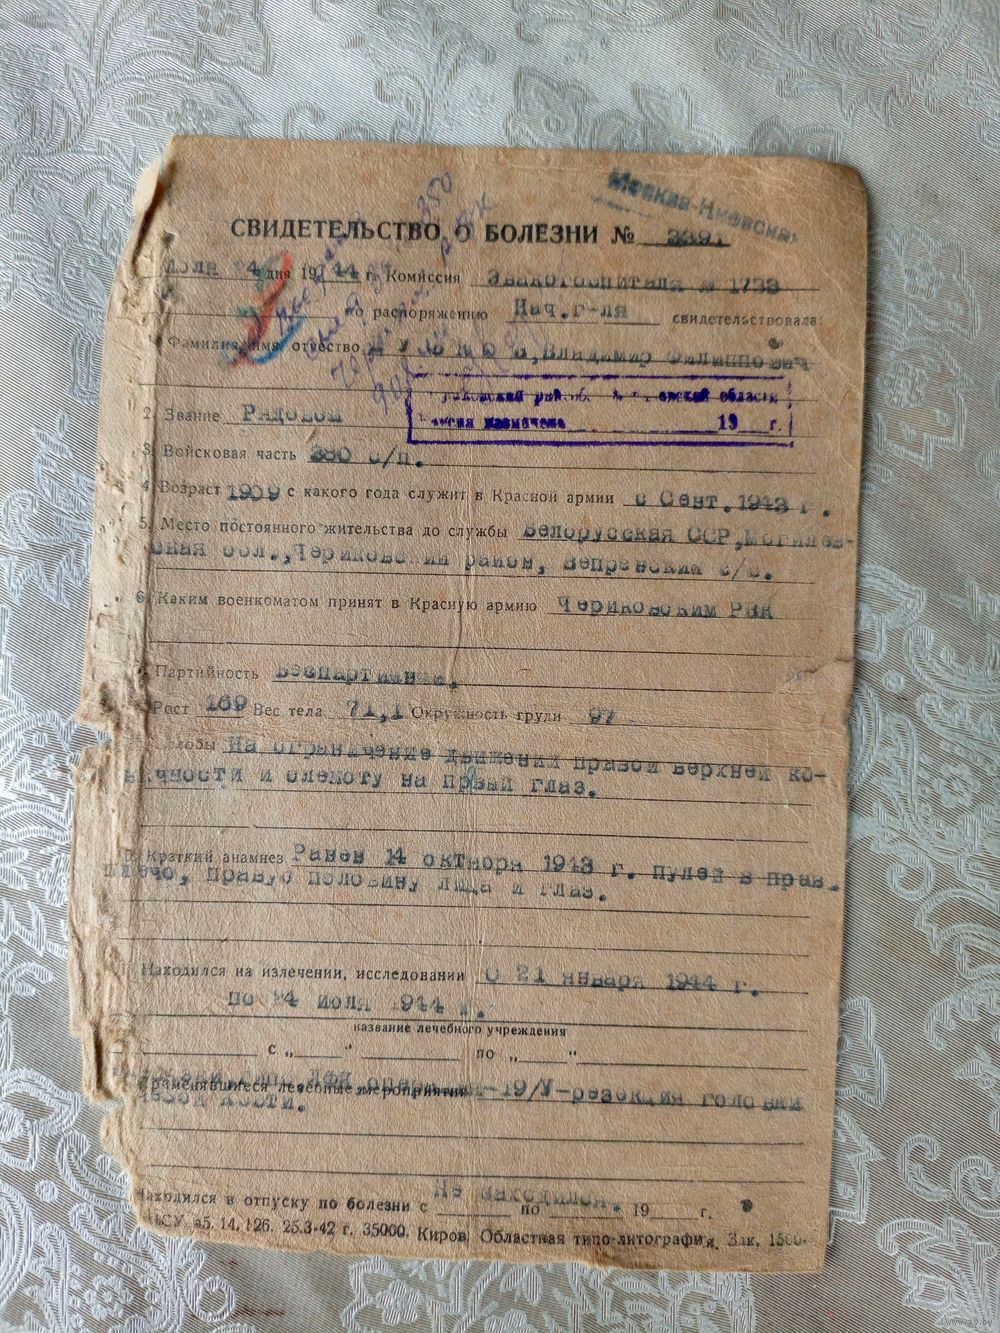 СВИДЕТЕЛЬСТВО О БОЛЕЗНИ № 3391
Июля 24 дня 1944 г. Комиссия Эвакогоспиталя № 1733
по распоряжению Нач.г-ля свидетельствовала:
Фамилия, имя, отчество Владимир Филиппович
районн области
назначена 19 г.
2. Звание Рядовой
3. Войсковая часть 380 с/п.
4. Возраст 1909 с какого года служит в Красной армии с Сент. 1943 г.
5. Место постоянного жительства до службы Белорусская ССР, Могилев-
ская обл., Чериковский район, Вепренский с/с.
6. Каким военкоматом принят в Красную армию Чериковским РВК
Партийность Беспартийный.
Рост 169 Вес тела 71,1 Окружность груди 97
Жалобы На ограничение движений правой верхней ко-
нечности и слепоту на правый глаз.
Краткий анамнез Ранен 14 октября 1943 г. пулей в прав.
плечо, правую половину лица и глаз.
Находился на излечении, исследовании С 21 января 1944 г.
по 24 июля 1944 г.
название лечебного учреждения
с „ “ по „ “
Применявшиеся лечебные мероприятия 19/V-резекция головки
кости.
Находился в отпуску по болезни с Не находился. по 19 г.
25.3-42 г. 35000. Киров. Областная типо-литография. Зак.